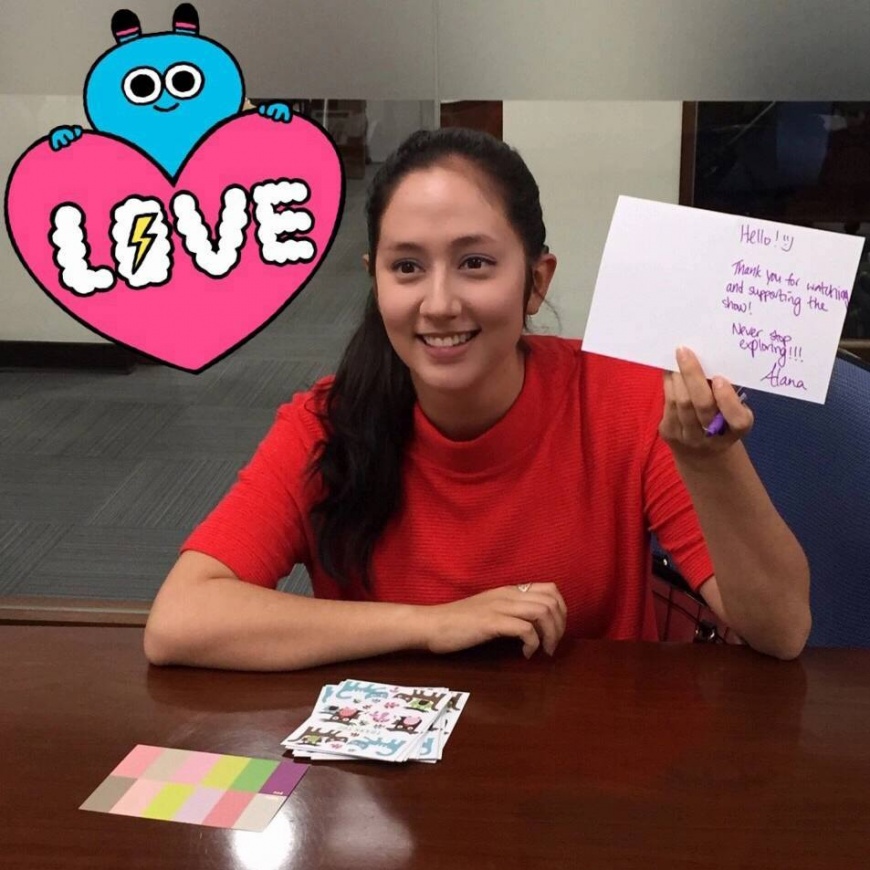 LOVE
Hello! :)
Thank you for watching
and supporting the
show!
Never stop
exploring!!!
Alana